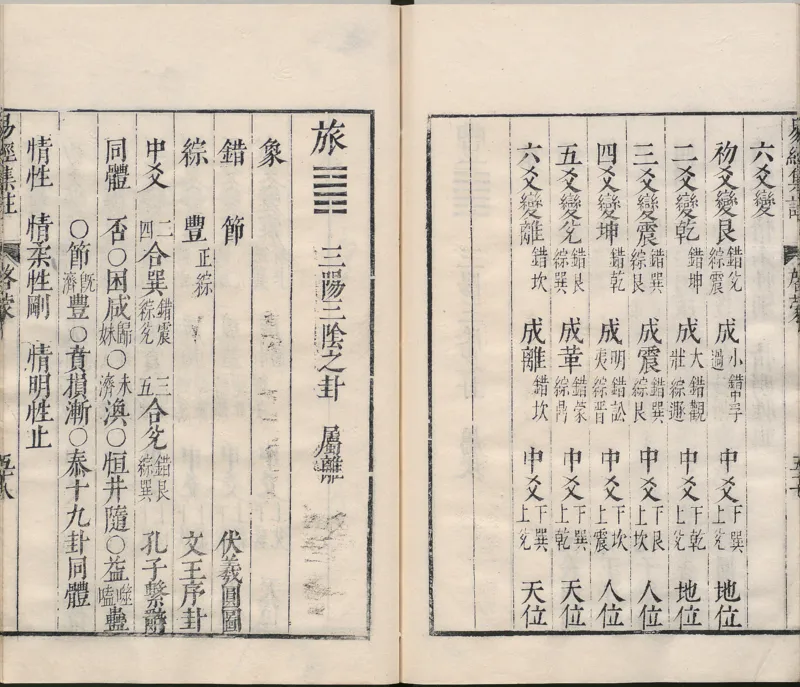 六爻變
初爻變艮 錯兌綜震 成小過 錯中孚 中爻 下巽上兌 地位
二爻變乾 錯坤 成大壯 錯觀綜遯 中爻 下乾上兌 地位
三爻變震 錯巽綜艮 成震 錯巽綜艮 中爻 下艮上坎 人位
四爻變坤 錯乾 成明夷 錯訟綜晉 中爻 下坎上震 人位
五爻變兌 錯艮綜巽 成革 錯蒙綜鼎 中爻 下巽上乾 天位
六爻變離 錯坎 成離 錯坎 中爻 下巽上兌 天位
旅 ䷷ 三陽三陰之卦 屬離
象
錯 節 伏羲圓圖
綜 豐 正綜 文王序卦
中爻 二四合巽 錯震綜兌 三五合兌 錯艮綜巽 孔子繫辭
同體 否○困咸歸妹○未濟渙○恒井隨○益噬嗑蠱
○節既濟豐○賁損漸○泰十九卦同體
情性 情柔性剛 情明性止
易經集註 啓蒙 五十八